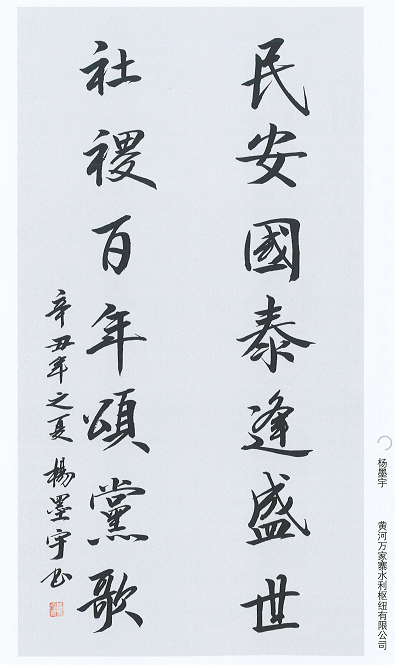 民安國泰逢盛世
社稷百年頌黨歌
辛丑年之夏 楊墨宇书
杨墨宇 黄河万家寨水利枢纽有限公司